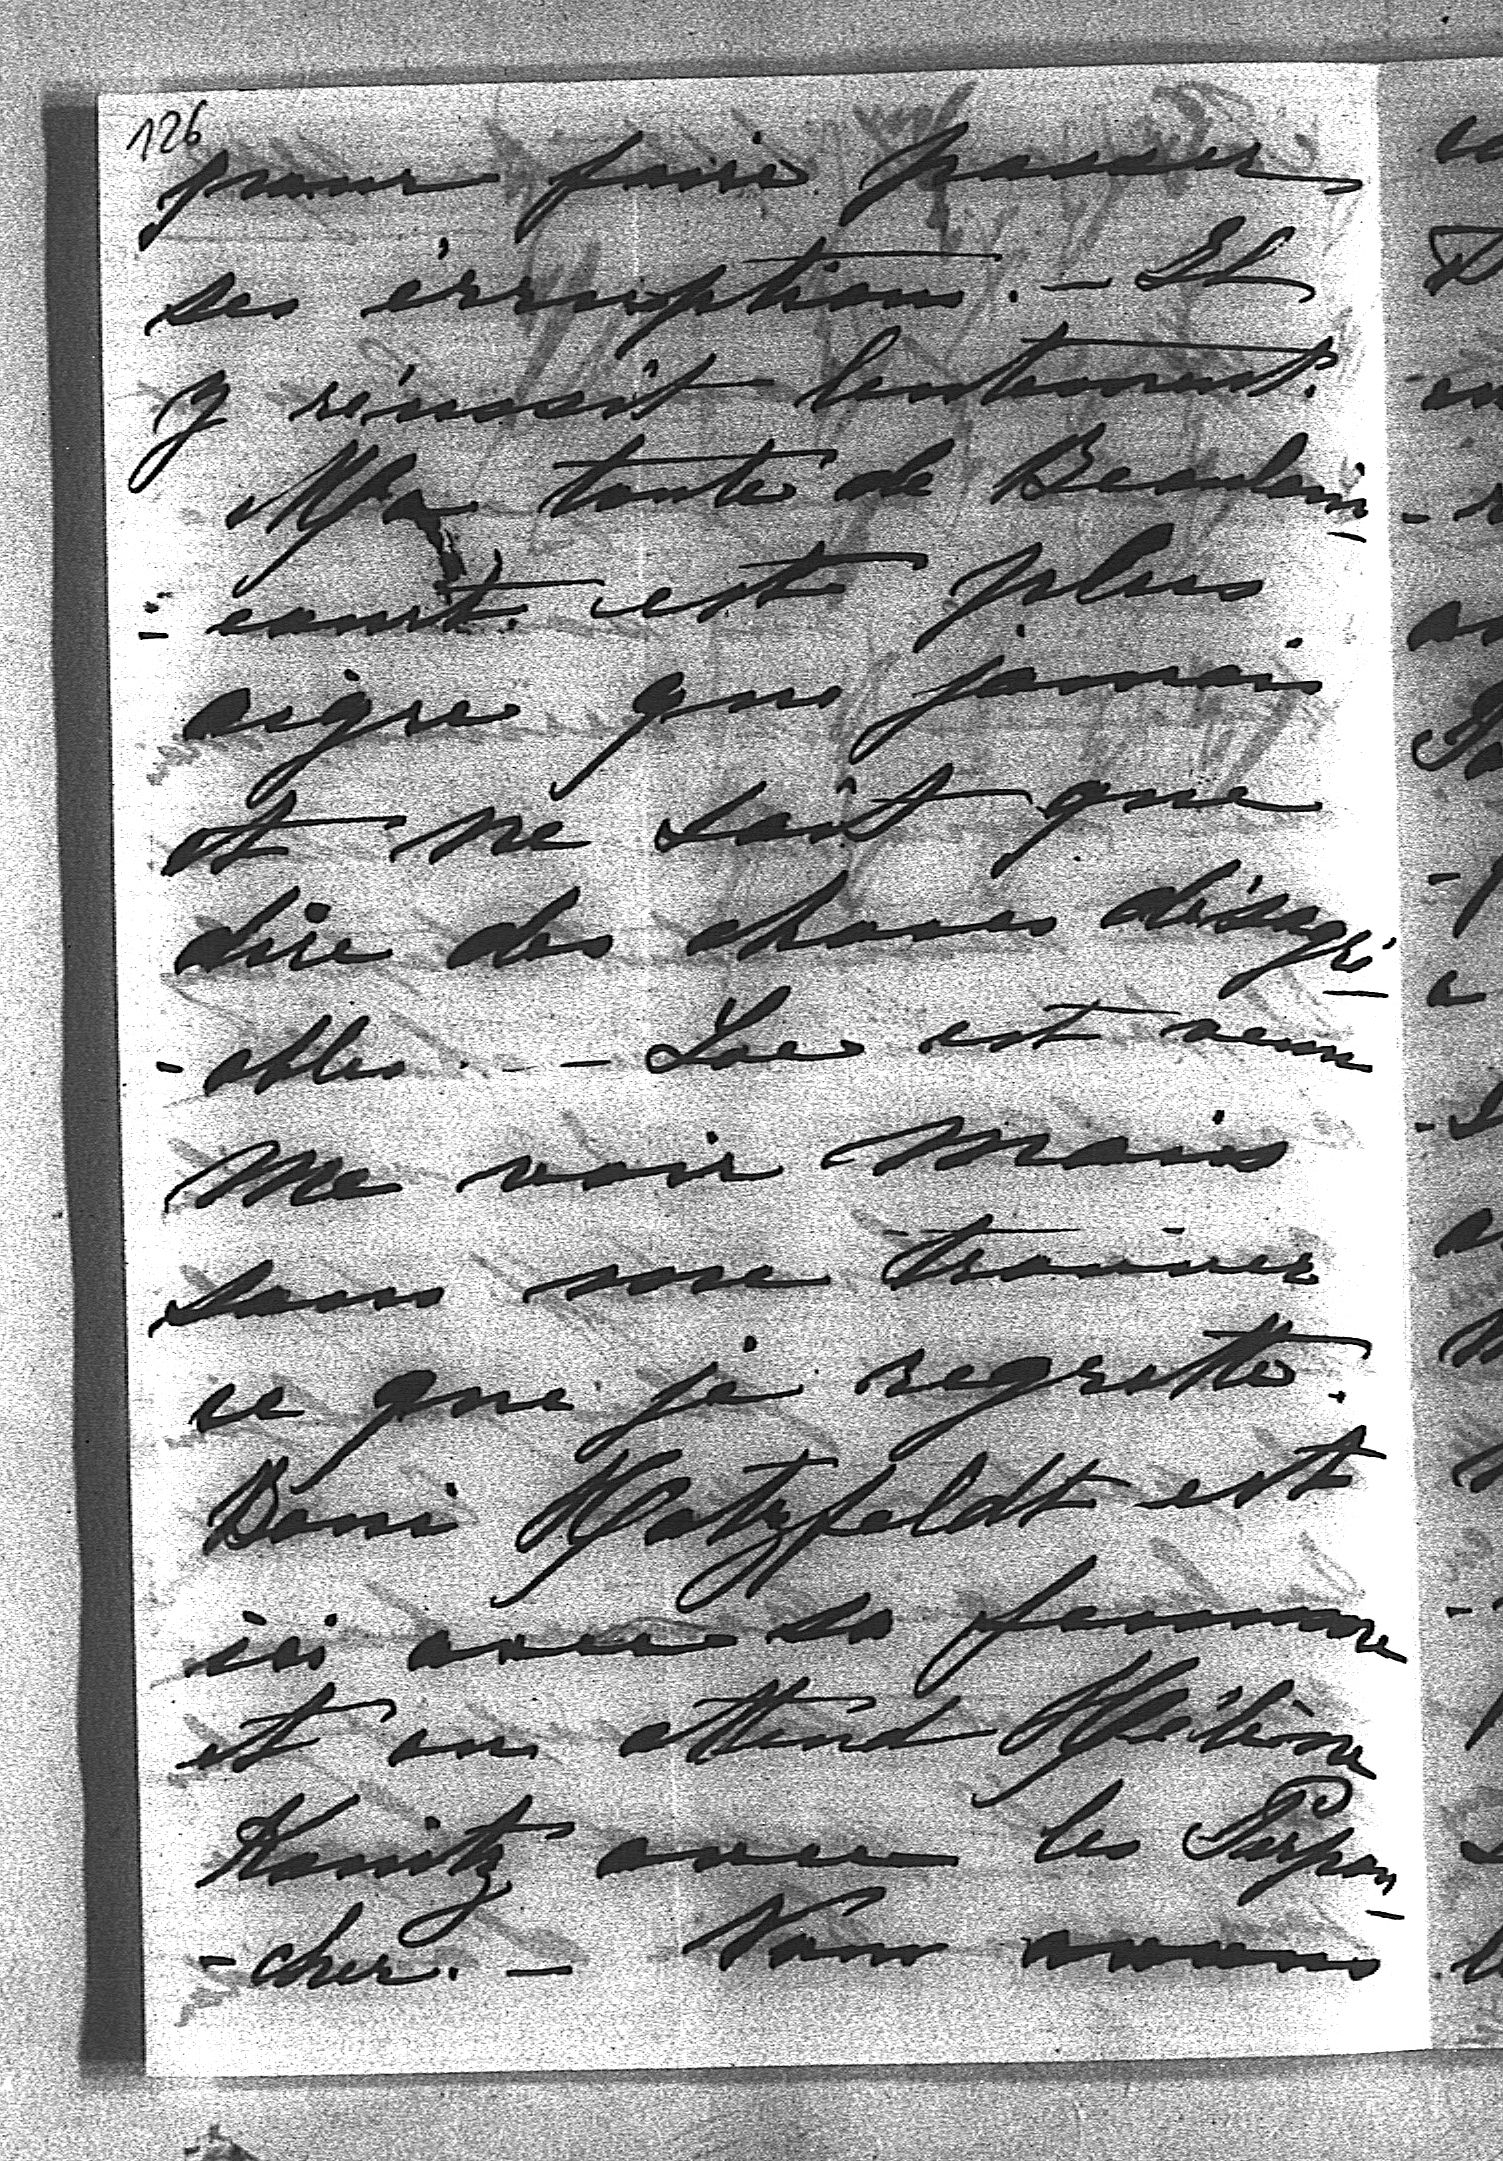 126
pour faire passer
ses érruptions. - Et
y réussit lentement.
Ma tante de Beaulain-
- court est plus
aigre que jamais
et ne sait que
dire des choses désagré-
- ables. - Loe est venu
me voir mais
sans me trouver
ce que je regrette.
Boni Hatzfeldt est
ici avec sa femme
et on attend Hélène
Kanitz avec les Perpon-
- cher. - Nous avons